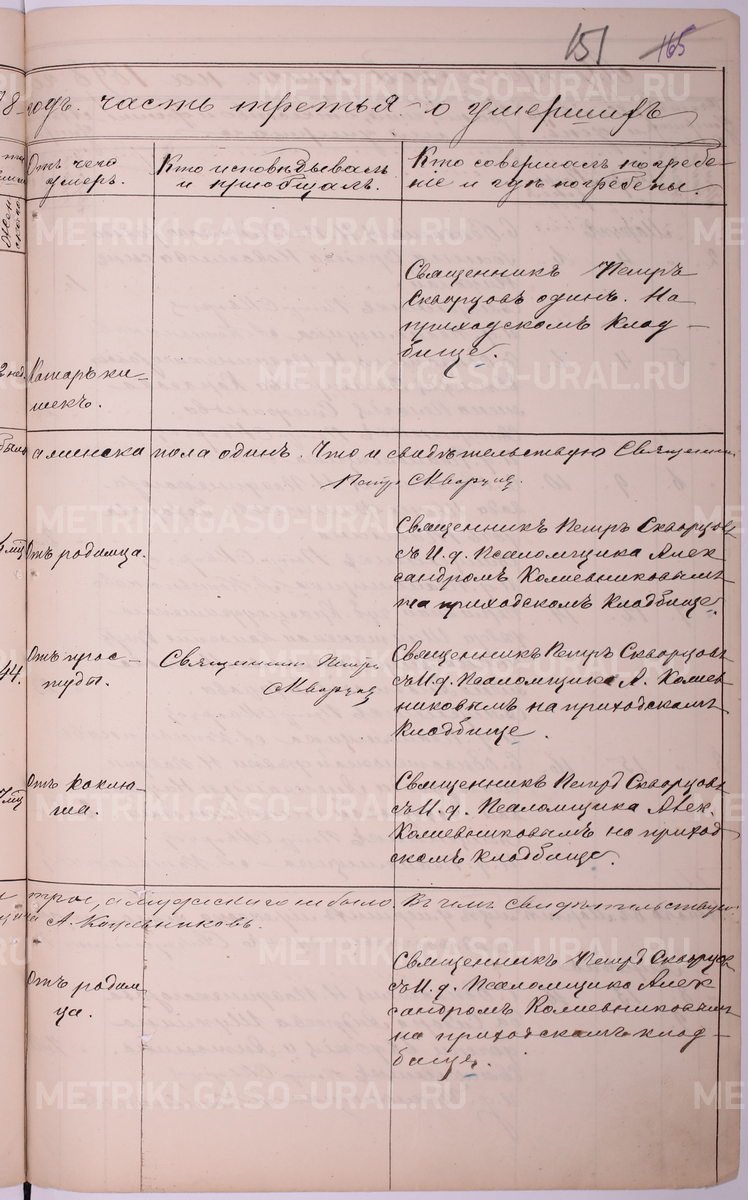 151 165
8 годъ. часть третья о умершихъ
Отъ чего
умеръ.
Кто исповѣдывалъ
и приобщалъ.
Кто совершалъ погребе-
ніе и гдѣ погребены.
Священникъ Петръ
Скворцовъ одинъ. На
приходскомъ клад-
бище.
2 нед. Катаръ ки-
шекъ.
пола одинъ. Что и свидѣтельствую Священник
Петръ Скворцовъ
Отъ родимца.
Священникъ Петръ Скворцовъ
съ И. д. Псаломщика Алек
сандромъ Кожевниковымъ
на приходскомъ кладбище.
44. Отъ прос-
туды.
Священникъ Петръ
Скворцовъ
Священникъ Петръ Скворцовъ
съ И. д. Псаломщика А. Кожев
никовымъ на приходскомъ
кладбище.
Отъ коклю-
ша.
Священникъ Петръ Скворцовъ
съ И. д. Псаломщика Алек.
Кожевниковымъ на приход
скомъ кладбище.
трое, а мужескаго не было. Въ чемъ свидѣтельствую
А. Кожевниковъ.
Отъ родим
ца.
Священникъ Петръ Скворцов
съ И. д. Псаломщика Алек
сандромъ Кожевниковымъ
на приходскомъ клад-
бище.
METRIKI.GASO-URAL.RU